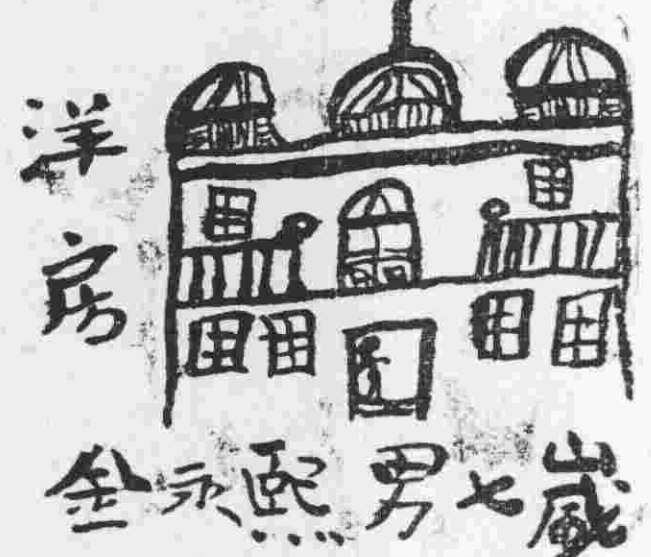 洋房
金永熙 男七歲